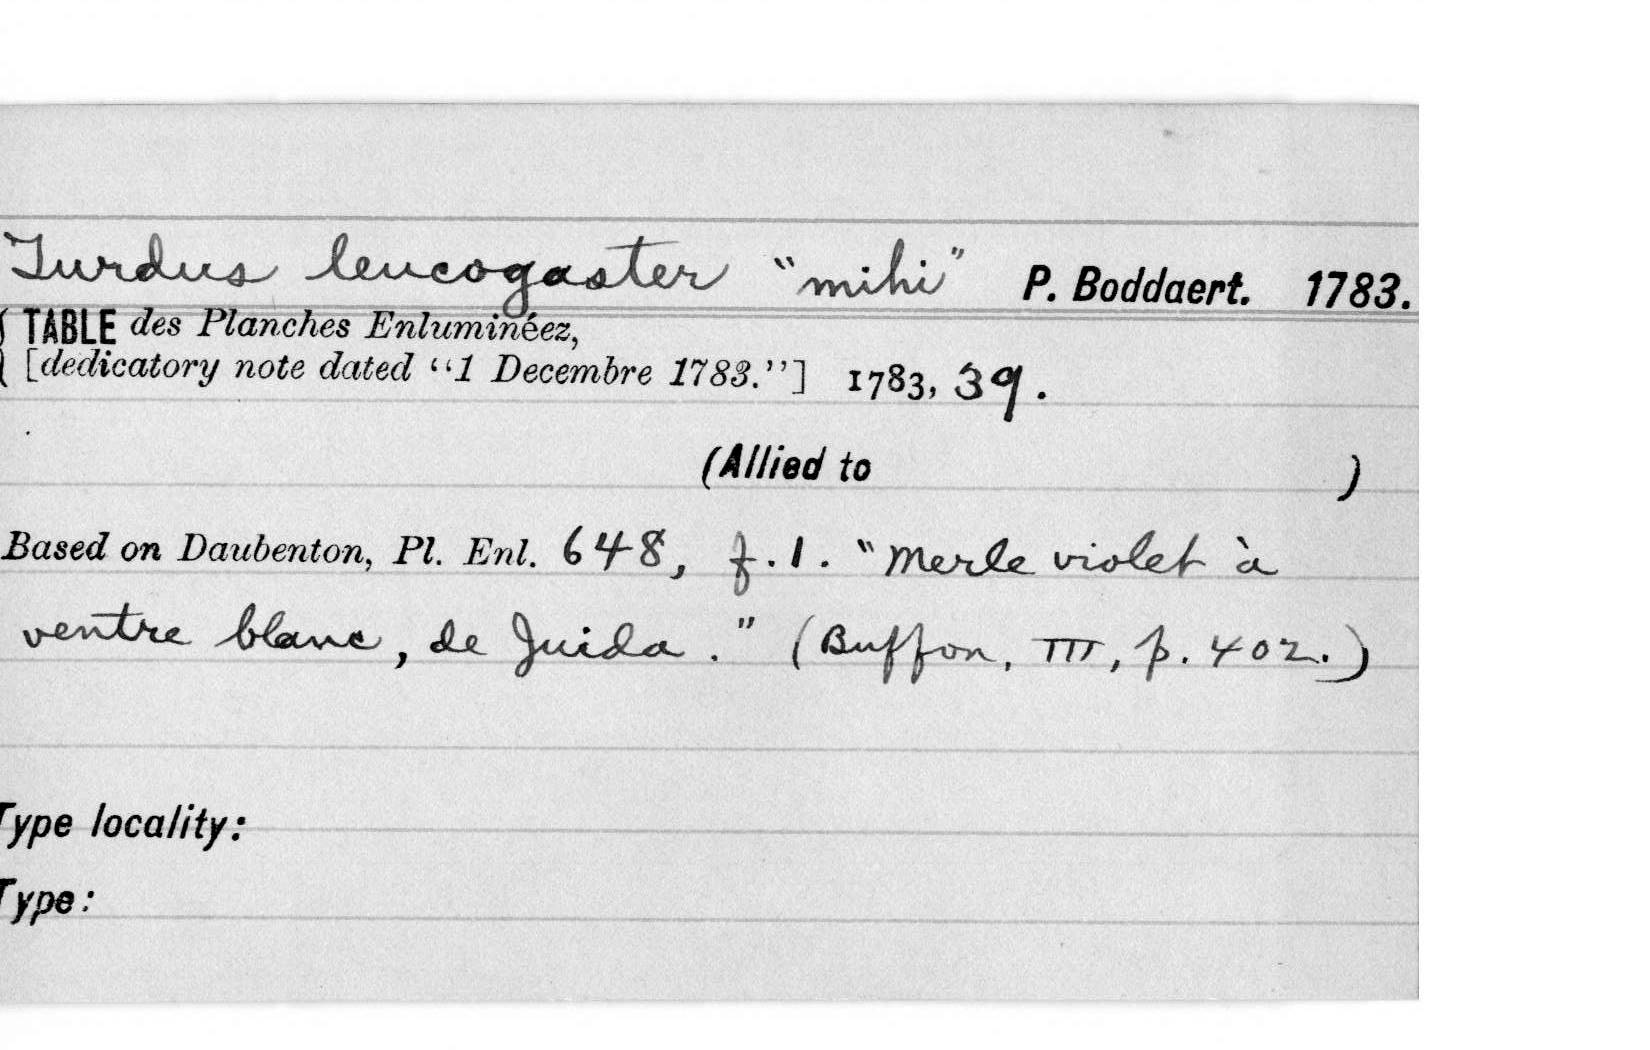 Turdus leucogaster "mihi" P. Boddaert. 1783.
TABLE des Planches Enluminéez,
[dedicatory note dated "1 Decembre 1783."] 1783, 39.
(Allied to )
Based on Daubenton, Pl. Enl. 648, f.1. "Merle violet à
ventre blanc, de Juida." (Buffon, III, p. 402.)
Type locality:
Type: